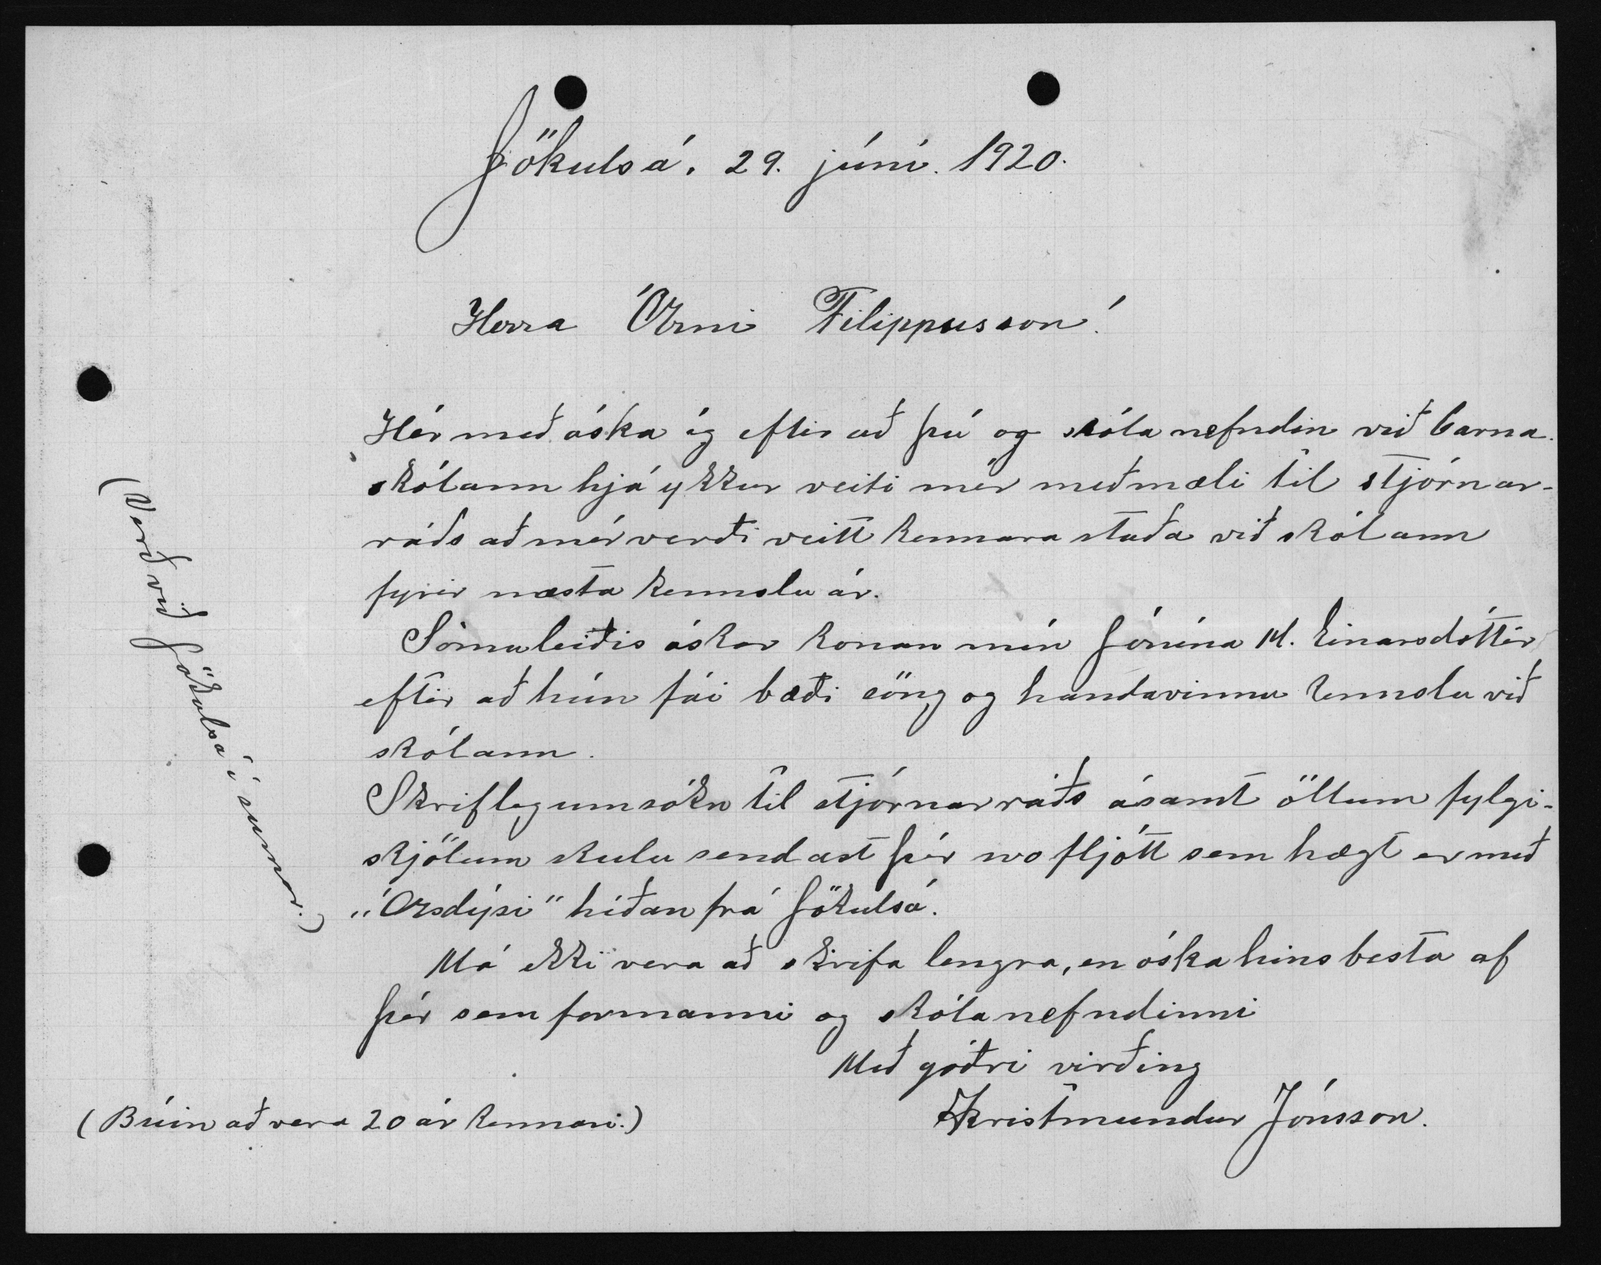 Jökulsá. 29. júní. 1920.
Herra Árni Filippusson!
Hér með óska ég eftir að þú og skóla nefndin við barna-
skólann hjá ykkur veiti mér meðmæli til stjórnar-
ráðs að mér verði veitt kennara staða við skólann
fyrir næsta kennslu ár.
Sömuleiðis óskar konan mín Jónína M. Einarsdóttir
eftir að hún fái bæði söng og handavinnu kennslu við
skólann.
Skrifleg umsókn til stjórnarráðs ásamt öllum fylgi-
skjölum skulu sendast þér svo fljótt sem hægt er með
"Ársdýsi" héðan frá Jökulsá.
Má ekki vera að skrifa lengra, en óska hins besta af
þér sem formanni og skólanefndinni
Með góðri virðing
Kristmundur Jónsson.
(Búin að vera 20 ár kennari.)
(Verð við Jökulsá í sumar.)